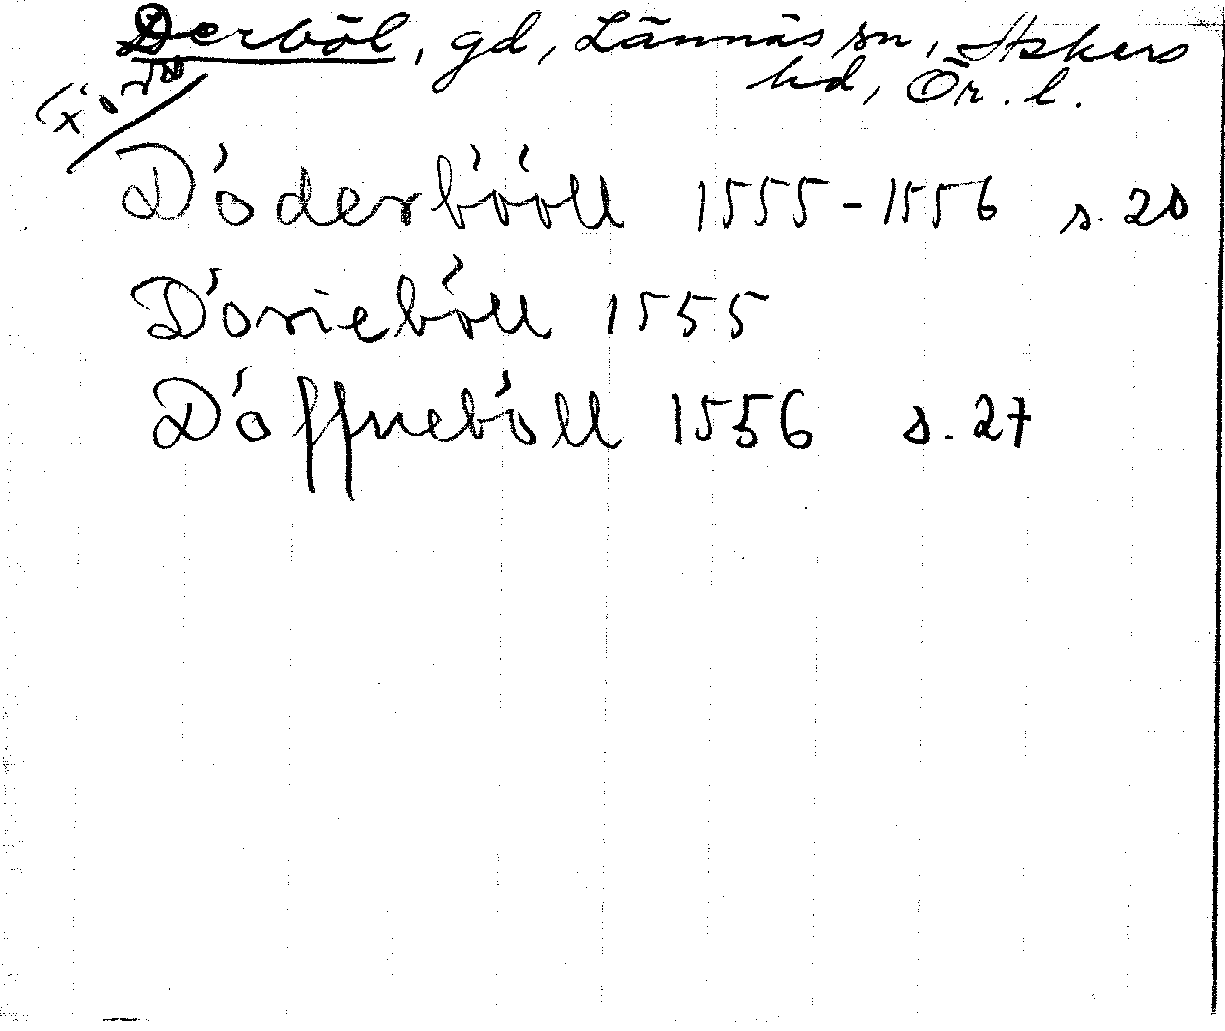 Derböl, gd, Lännäs sn, Askers
hd, Ör. l.
Dóderbóóll 1555-1556 s. 20
Dórieból​l 1555
Dóffneból​l 1556 s. 27